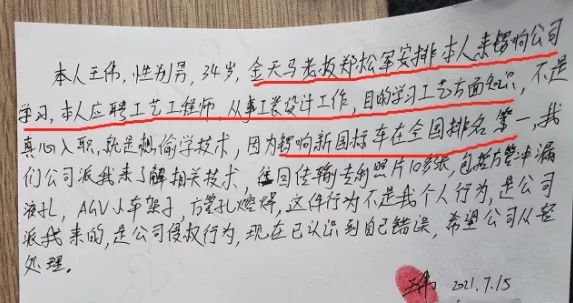 本人王伟,性别男,34岁,金天马老板郑松军安排本人来锣响公司
学习,本人应聘工艺工程师,从事工装设计工作,目的学习工艺方面知识,不是
真心入职,就是想偷学技术,因为锣响新国标车在全国排名第一,我
们公司派我来了解相关技术,回传输专利照片10多张,包括方管冲漏
液孔,AGV小车架子,方管孔熔焊,这件行为不是我个人行为,是公司
派我来的,是公司侵权行为,现在已认识到自己错误,希望公司从轻
处理。
王伟 2021.7.15